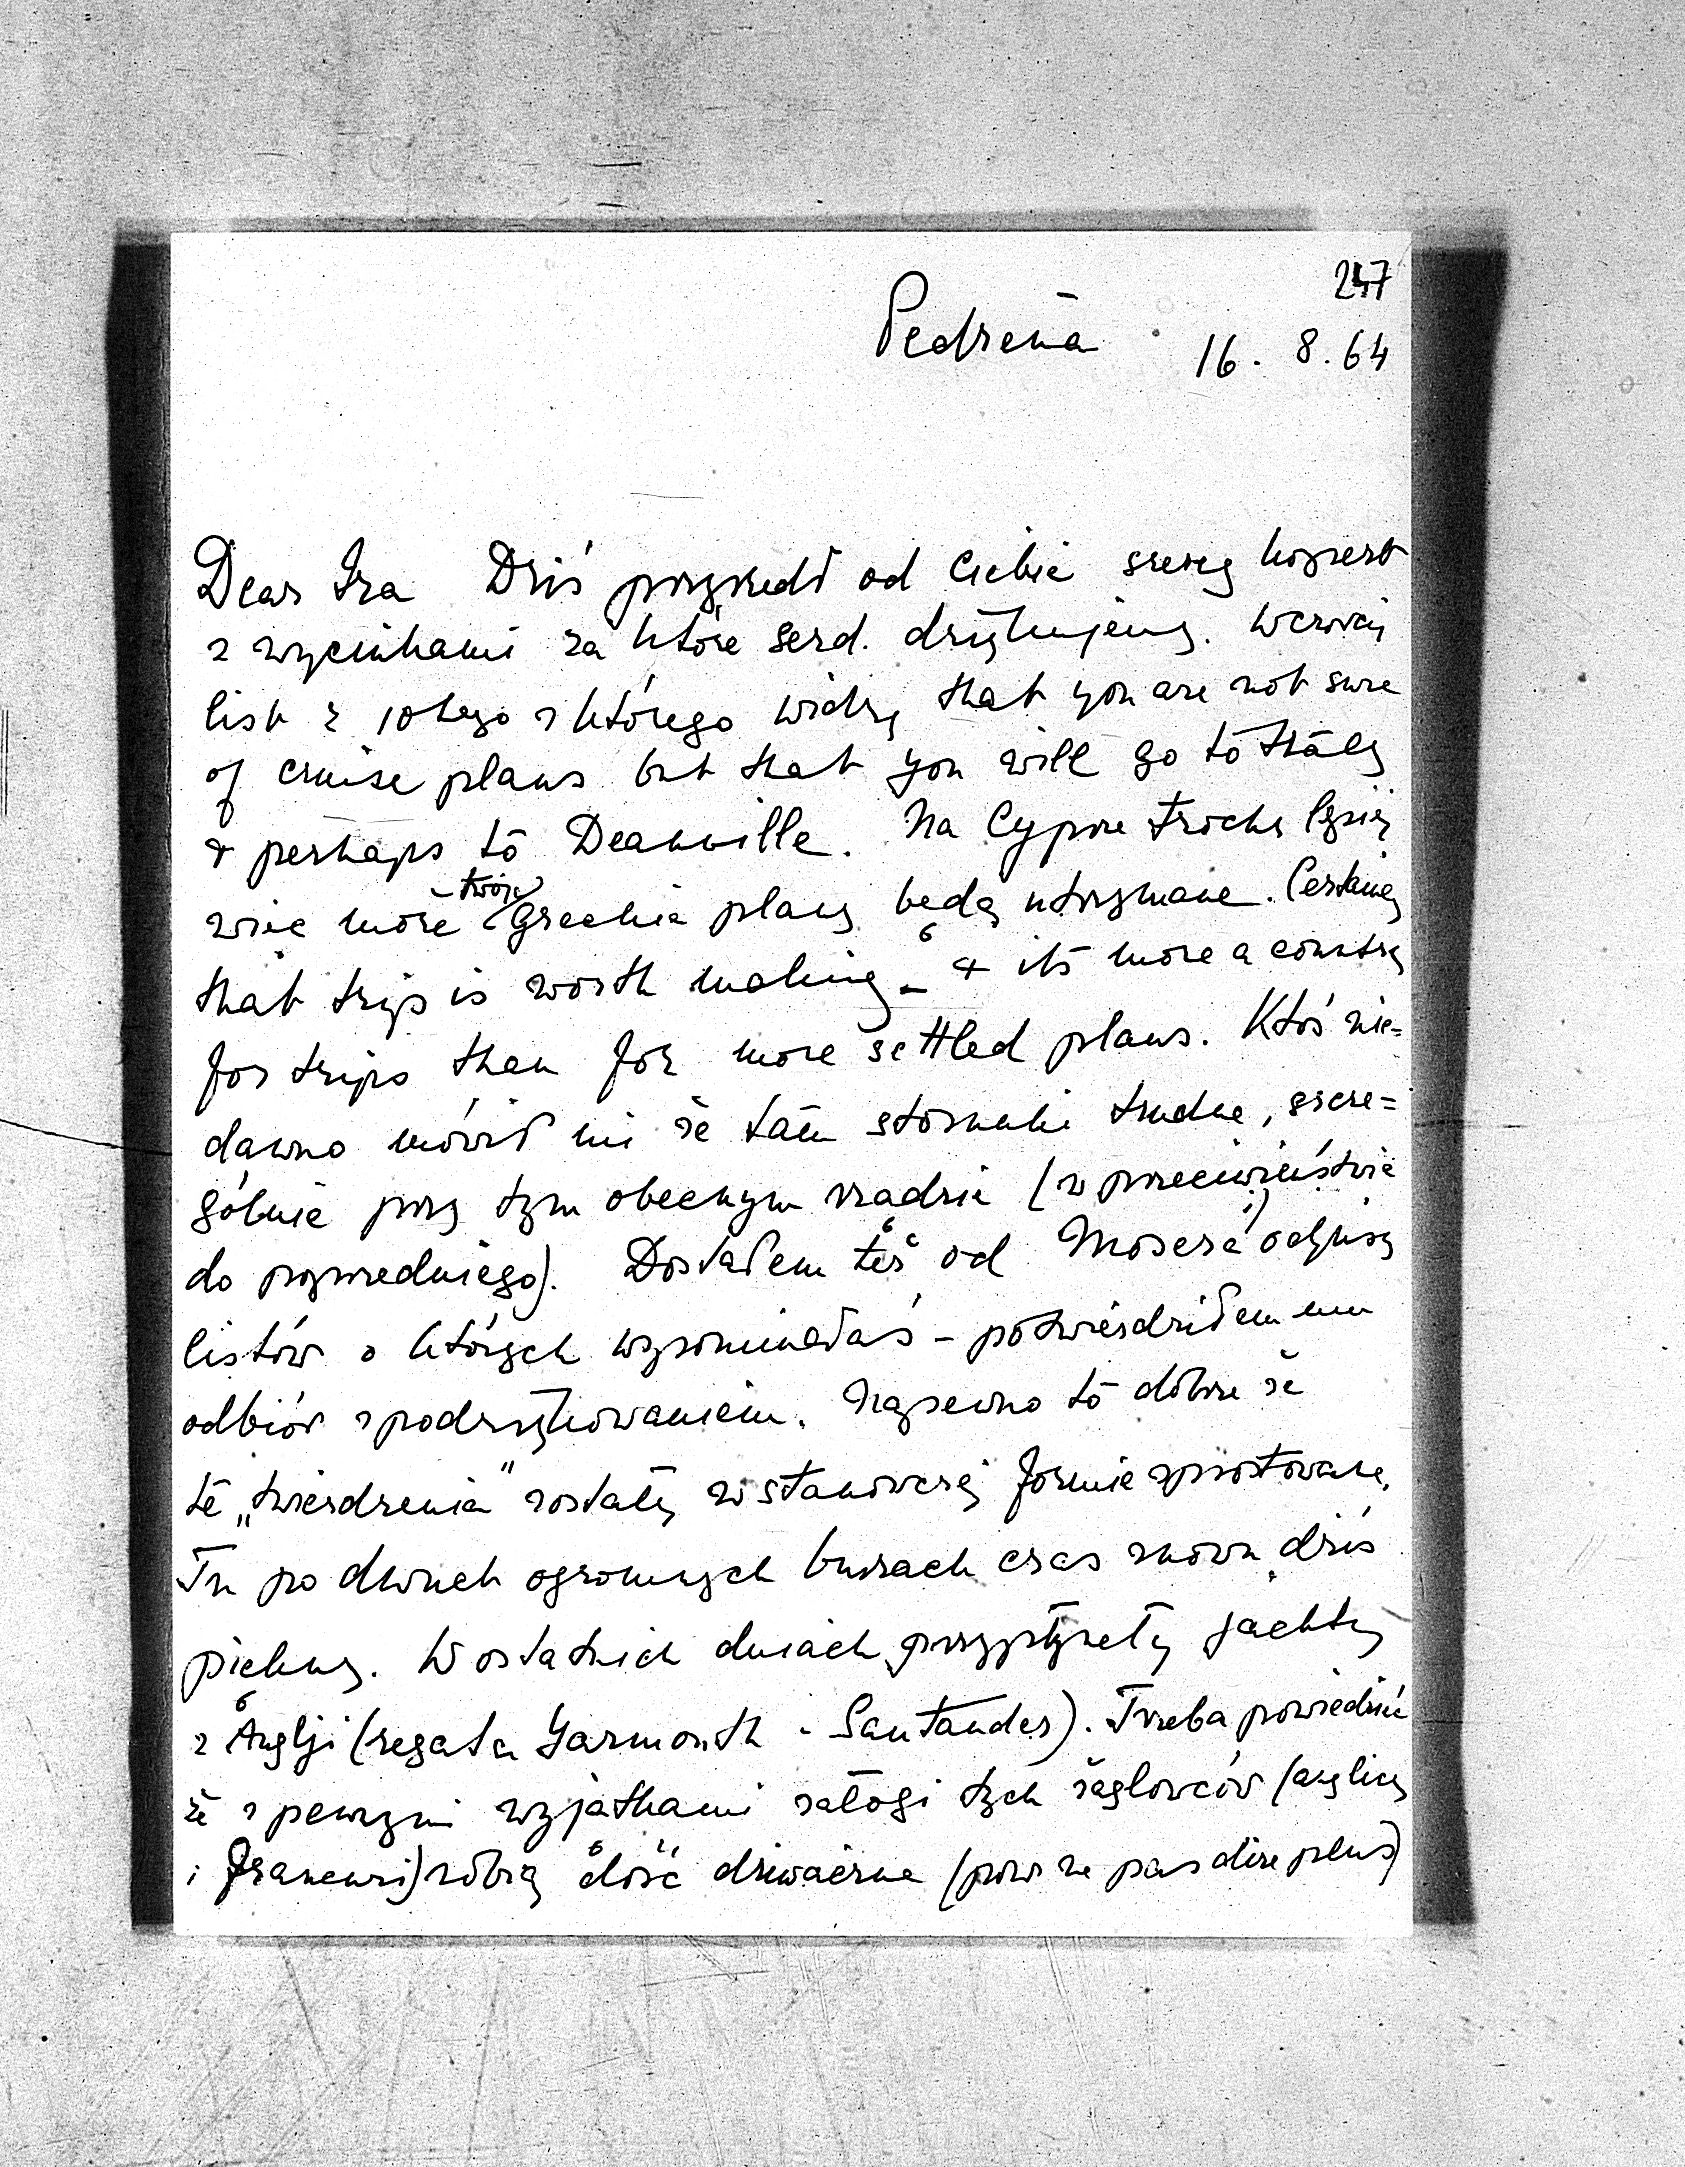 247
Pedreña 16. 8. 64
Dear Ira Dziś przyszedł od Ciebie szereg kopert
z wycinkami za które serd. dziękujemy. Wczoraj
list z 10tego z którego widzę that you are not sure
of cruise plans but that you will go to Italy
& perhaps to Deauville. Na Cyprze trochę lepiej
więc może twoje Greckie plany będą utrzymane. Certainly
that trip is worth making - & its more a country
for trips than for more settled plans. Ktoś nie=
dawno mówił mi że tam stosunki trudne, szcze=
gólnie przy tym obecnym rządzie (w przeciwieństwie
do poprzedniego). Dostałem też od Mosera odpisy
listów o których wspominałaś - potwierdziłem mu
odbiór z podziękowaniem. Napewno to dobrze że
te „twierdzenia” zostały w stanowczej formie sprostowane.
Tu po dwuch ogromnych burzach czas znowu dziś
piękny. W ostatnich dniach przypłynęły jachty
z Anglji (regata Yarmouth - Santander). Trzeba powiedzieć
że z pewnymi wyjątkami załogi tych żaglowców (anglicy
i francuzi) robią dość dziwaczne (pour ne pas dire plus)